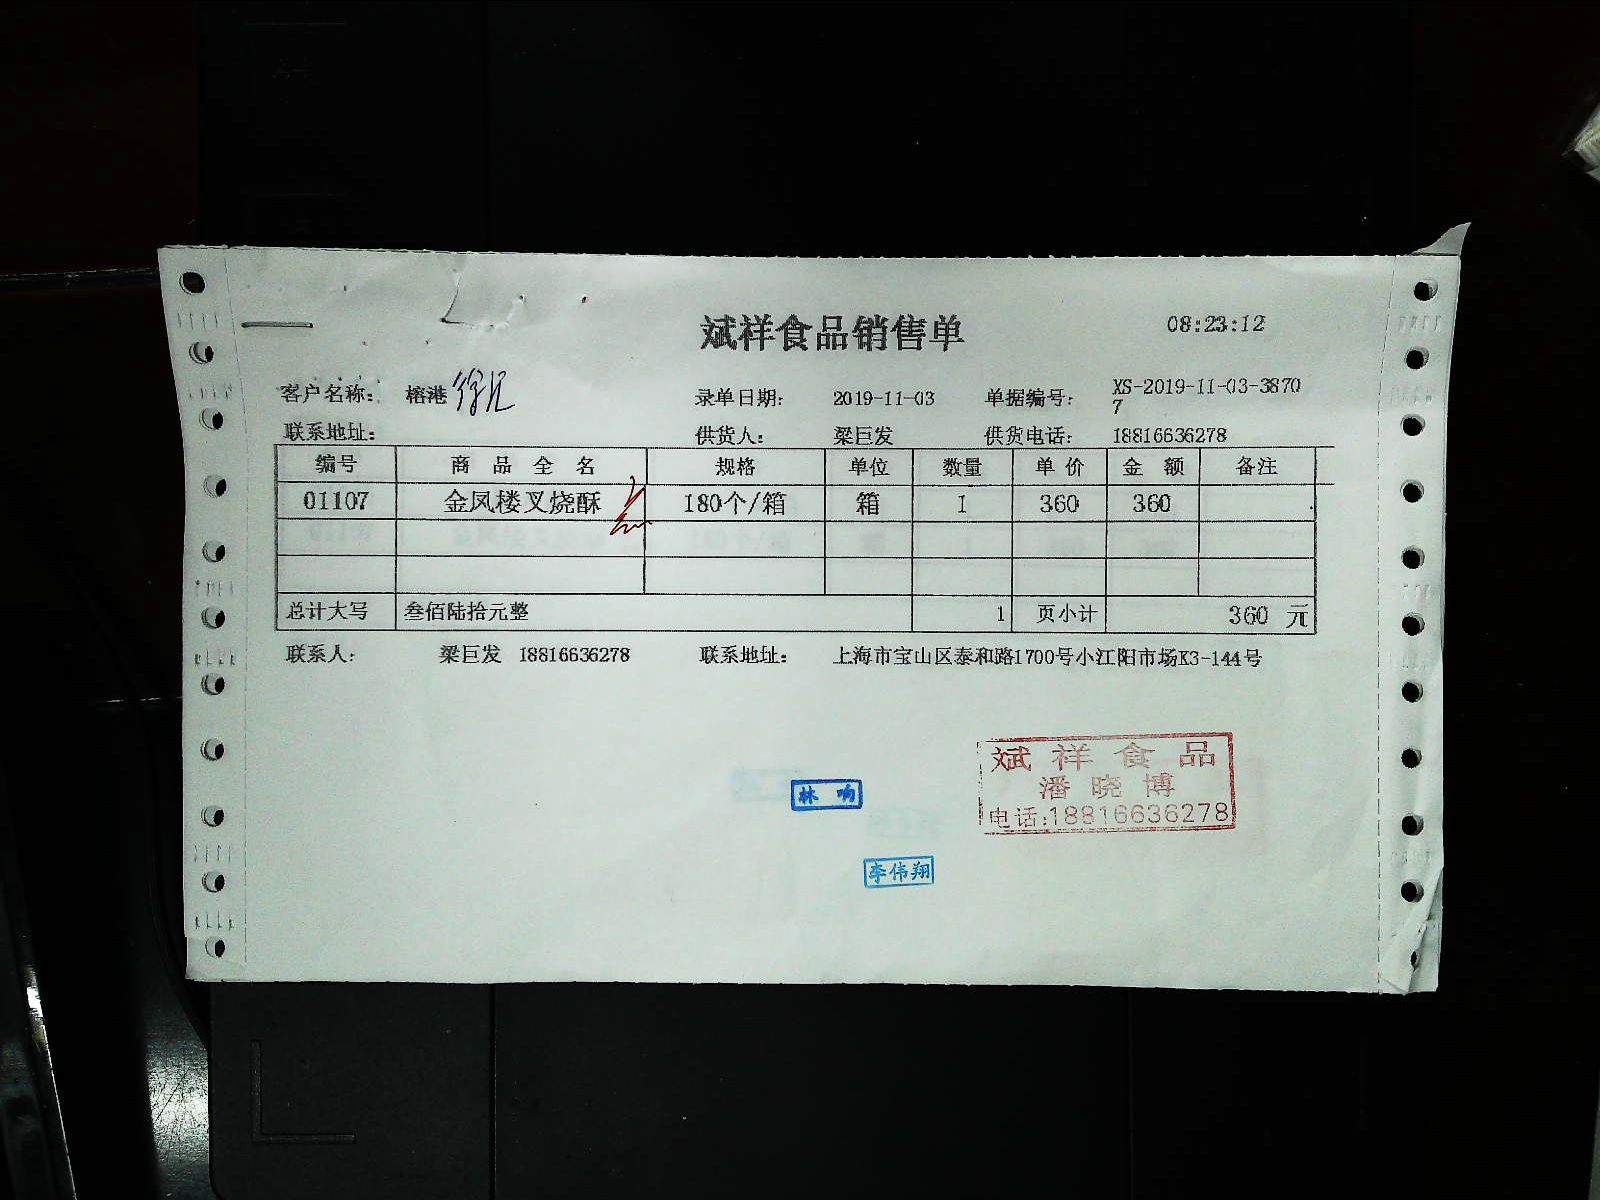 斌祥食品销售单 08:23:12
客户名称: 榕港 录单日期: 2019-11-03 单据编号: XS-2019-11-03-3870
7
联系地址: 供货人: 梁巨发 供货电话: 18816636278
编号 商品全名 规格 单位 数量 单价 金额 备注
01107 金凤楼叉烧酥 180个/箱 箱 1 360 360
总计大写 叁佰陆拾元整 1 页小计 360 元
联系人: 梁巨发 18816636278 联系地址: 上海市宝山区泰和路1700号小江阳市场K3-144号
斌祥食品
潘晓博
电话:18816636278
林响
李伟翔